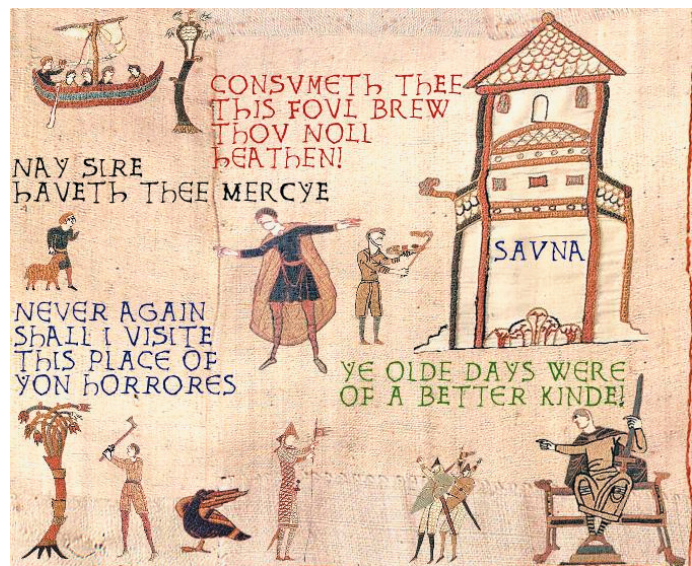 CONSVMETh ThEE
ThIS FOVL BREW
ThOV NOLL
hEAThEN!
NAY SIRE
hAVETh ThEE MERCYE
SAVNA
NEVER AGAIN
ShALL I VISITE
ThIS PLACE OF
YON hORRORES
YE OLDE DAYS WERE
OF A BETTER KINDE!